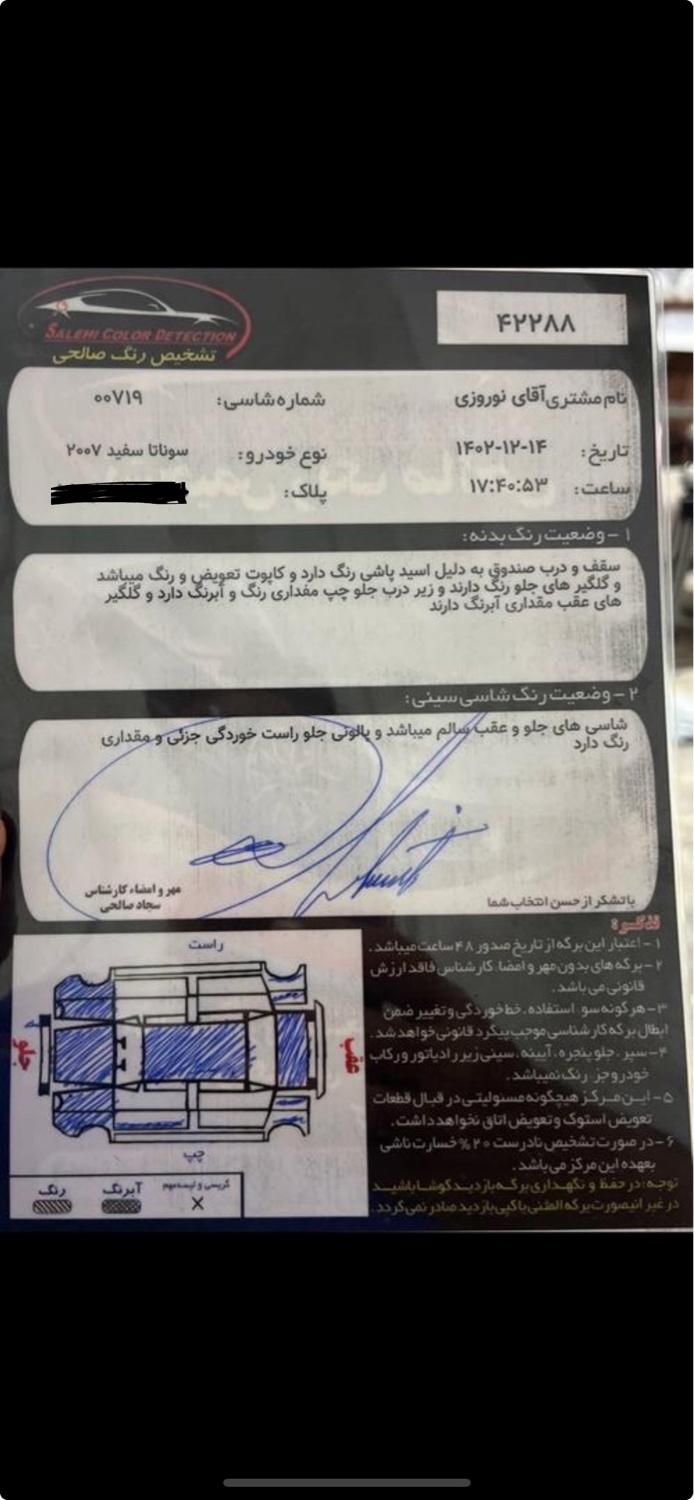 SALEHI COLOR DETECTION
تشخیص رنگ صالحی
۴۲۲۸۸
نام مشتری آقای نوروزی
شماره شاسی: ۰۰۷۱۹
تاریخ: ۱۴۰۲-۱۲-۱۴
نوع خودرو: سوناتا سفید ۲۰۰۷
ساعت: ۱۷:۴۰:۵۳
پلاک:
۱ - وضعیت رنگ بدنه:
سقف و درب صندوق به دلیل اسید پاشی رنگ دارد و کاپوت تعویض و رنگ میباشد
و گلگیر های جلو رنگ دارند و زیر درب جلو چپ مقداری رنگ و آبرنگ دارد و گلگیر
های عقب مقداری آبرنگ دارند
۲ - وضعیت رنگ شاسی سینی:
شاسی های جلو و عقب سالم میباشد و پالونی جلو راست خوردگی جزئی و مقداری
رنگ دارد
مهر و امضاء کارشناس
سجاد صالحی
باتشکر از حسن انتخاب شما
تذکر:
۱ - اعتبار این برگه از تاریخ صدور ۴۸ ساعت میباشد.
۲ - برگه های بدون مهر و امضا، کارشناس فاقد ارزش
قانونی می باشد.
۳ - هرگونه سو، استفاده، خط خوردگی و تغییر ضمن
ابطال برگه کارشناسی موجب پیگرد قانونی خواهد شد.
۴ - سپر، جلو پنجره، آیینه، سینی زیر رادیاتور و رکاب
خودرو جز، رنگ نمیباشد.
۵ - این مرکز هیچگونه مسئولیتی در قبال قطعات
تعویض استوک و تعویض اتاق نخواهد داشت.
۶ - در صورت تشخیص نادرست ۲۰% خسارت ناشی
بعهده این مرکز می باشد.
توجه: در حفظ و نگهداری برگه بازدید کوشا باشید
در غیر اینصورت برگه المثنی یا کپی بازدید صادر نمی گردد.
راست
جلو
عقب
چپ
رنگ
آبرنگ